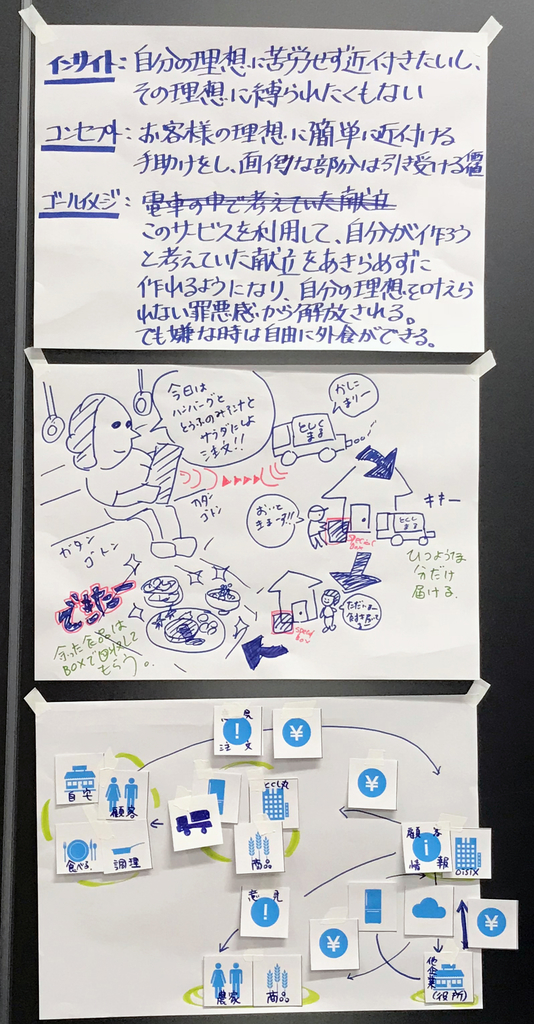 インサイト: 自分の理想に苦労せず近付きたいし、
その理想に縛られたくもない
コンセプト: お客様の理想に簡単に近付ける
手助けをし、面倒な部分は引き受ける価値
ゴールイメジ: 電車の中で考えていた献立
このサービスを利用して、自分が作ろう
と考えていた献立をあきらめずに
作れるようになり、自分の理想を叶えら
れない罪悪感から解放される。
でも嫌な時は自由に外食ができる。
今日は
ハンバーグと
とうふのみそ汁と
サラダにしよ
注文!!
かしこ
まりー
とくし
まる
ガタン
ゴトン
ガタン
ゴトン
おいと
きまーす!!
special
Box
とくし
まる
キキー
ひつような
分だけ
届ける
ただいまー
できたー
余った食品は
BOXで回収して
もらう。
注文
¥
¥
自宅
顧客
とくし丸
食べる
調理
商品
顧客
情報
Oisix
意見
¥
¥
農家
商品
他企業
(役所)